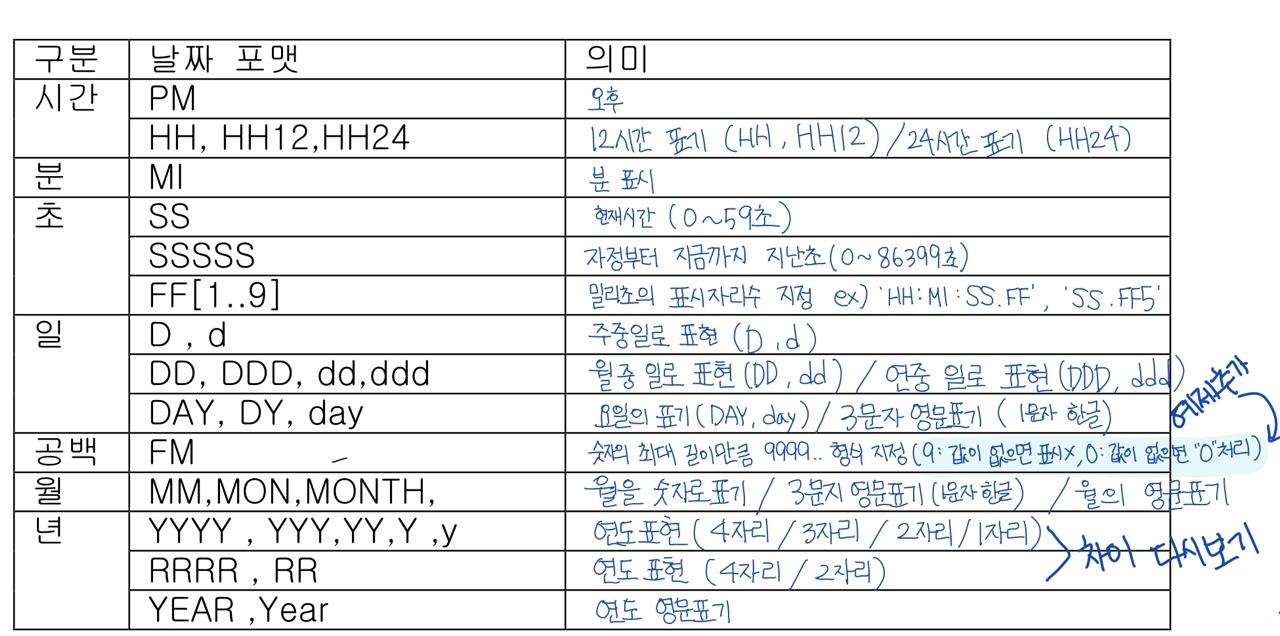 구분 날짜 포맷 의미
시간 PM 오후
HH, HH12,HH24 12시간 표기 (HH, HH12) / 24시간 표기 (HH24)
분 MI 분 표시
초 SS 현재시간 (0~59초)
SSSSS 자정부터 지금까지 지난초 (0~86399초)
FF[1..9] 밀리초의 표시자리수 지정 ex) 'HH:MI:SS.FF', 'SS.FF5'
일 D , d 주중일로 표현 (D, d)
DD, DDD, dd,ddd 월중 일로 표현 (DD, dd) / 연중 일로 표현 (DDD, ddd)
예제추가
DAY, DY, day 요일의 표기 (DAY, day) / 3문자 영문표기 (1문자 한글)
공백 FM 숫자의 최대 길이만큼 9999.. 형식 지정 (9: 값이 없으면 표시X, 0: 값이 없으면 "0"처리)
월 MM,MON,MONTH, 월을 숫자로 표기 / 3문자 영문표기 (1문자 한글) / 월의 영문표기
년 YYYY , YYY,YY,Y ,y 연도표현 (4자리 / 3자리 / 2자리 / 1자리)
차이 다시보기
RRRR , RR 연도 표현 (4자리 / 2자리)
YEAR ,Year 연도 영문표기